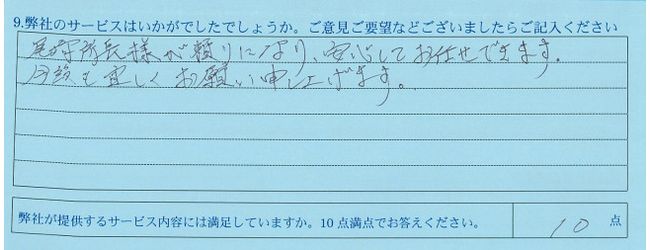 9.弊社のサービスはいかがでしたでしょうか。ご意見ご要望などございましたらご記入ください
所長様が頼りになり、安心してお任せできます。
今後も宜しくお願い申し上げます。
弊社が提供するサービス内容には満足していますか。10点満点でお答えください。
10 点